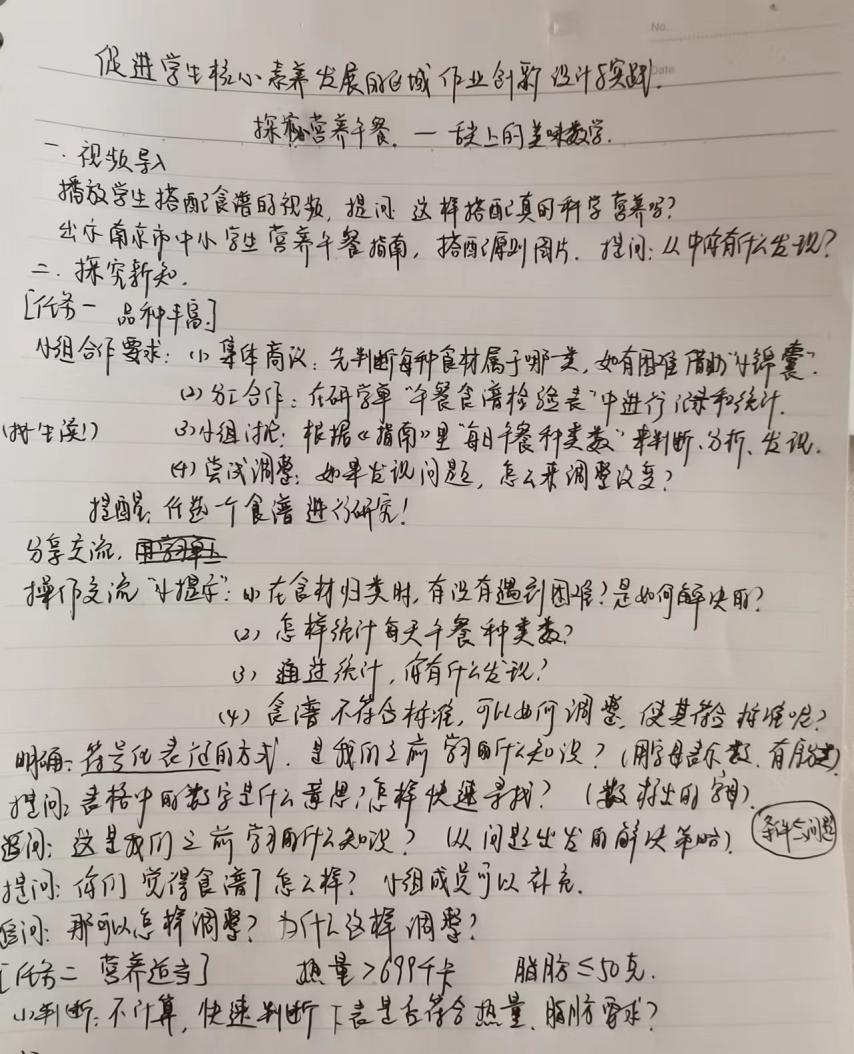 No.
Date
促进学生核心素养发展的区域作业创新设计与实践.
探秘营养午餐. — 舌尖上的美味数学.
一. 视频导入
播放学生搭配食谱的视频, 提问: 这样搭配真的科学营养吗?
出示南京市中小学生营养午餐指南, 搭配原则图片. 提问: 从中你有什么发现?
二. 探究新知.
[任务一 品种丰富]
小组合作要求: (1) 集体商议: 先判断每种食材属于哪一类, 如有困难借助“小锦囊”.
(2) 分工合作: 在研学单“午餐食谱检验表”中进行记录和统计.
(指生读!) (3) 小组讨论: 根据《指南》里“每日午餐种类数”来判断、分析、发现.
(4) 尝试调整: 如果发现问题, 怎么来调整改变?
提醒: 任选一个食谱进行研究!
分享交流.
操作交流“小提示”: (1) 在食材归类时, 有没有遇到困难? 是如何解决的?
(2) 怎样统计每天午餐种类数?
(3) 通过统计, 你有什么发现?
(4) 食谱不符合标准, 可以如何调整, 使其符合标准呢?
明确: 符号化表达的方式. 是我们之前学习的什么知识? (用字母表示数.
提问: 表格中的数字是什么意思? 怎样快速寻找? (数 的字母).
追问: 这是我们之前学习的什么知识? (从问题出发的解决策略). 条件与问题
提问: 你们觉得食谱1怎么样? 小组成员可以补充.
追问: 那可以怎样调整? 为什么这样调整?
[任务二 营养适当] 热量>699千卡 脂肪≤50克.
(1) 判断: 不计算, 快速判断下表是否符合热量、脂肪要求?